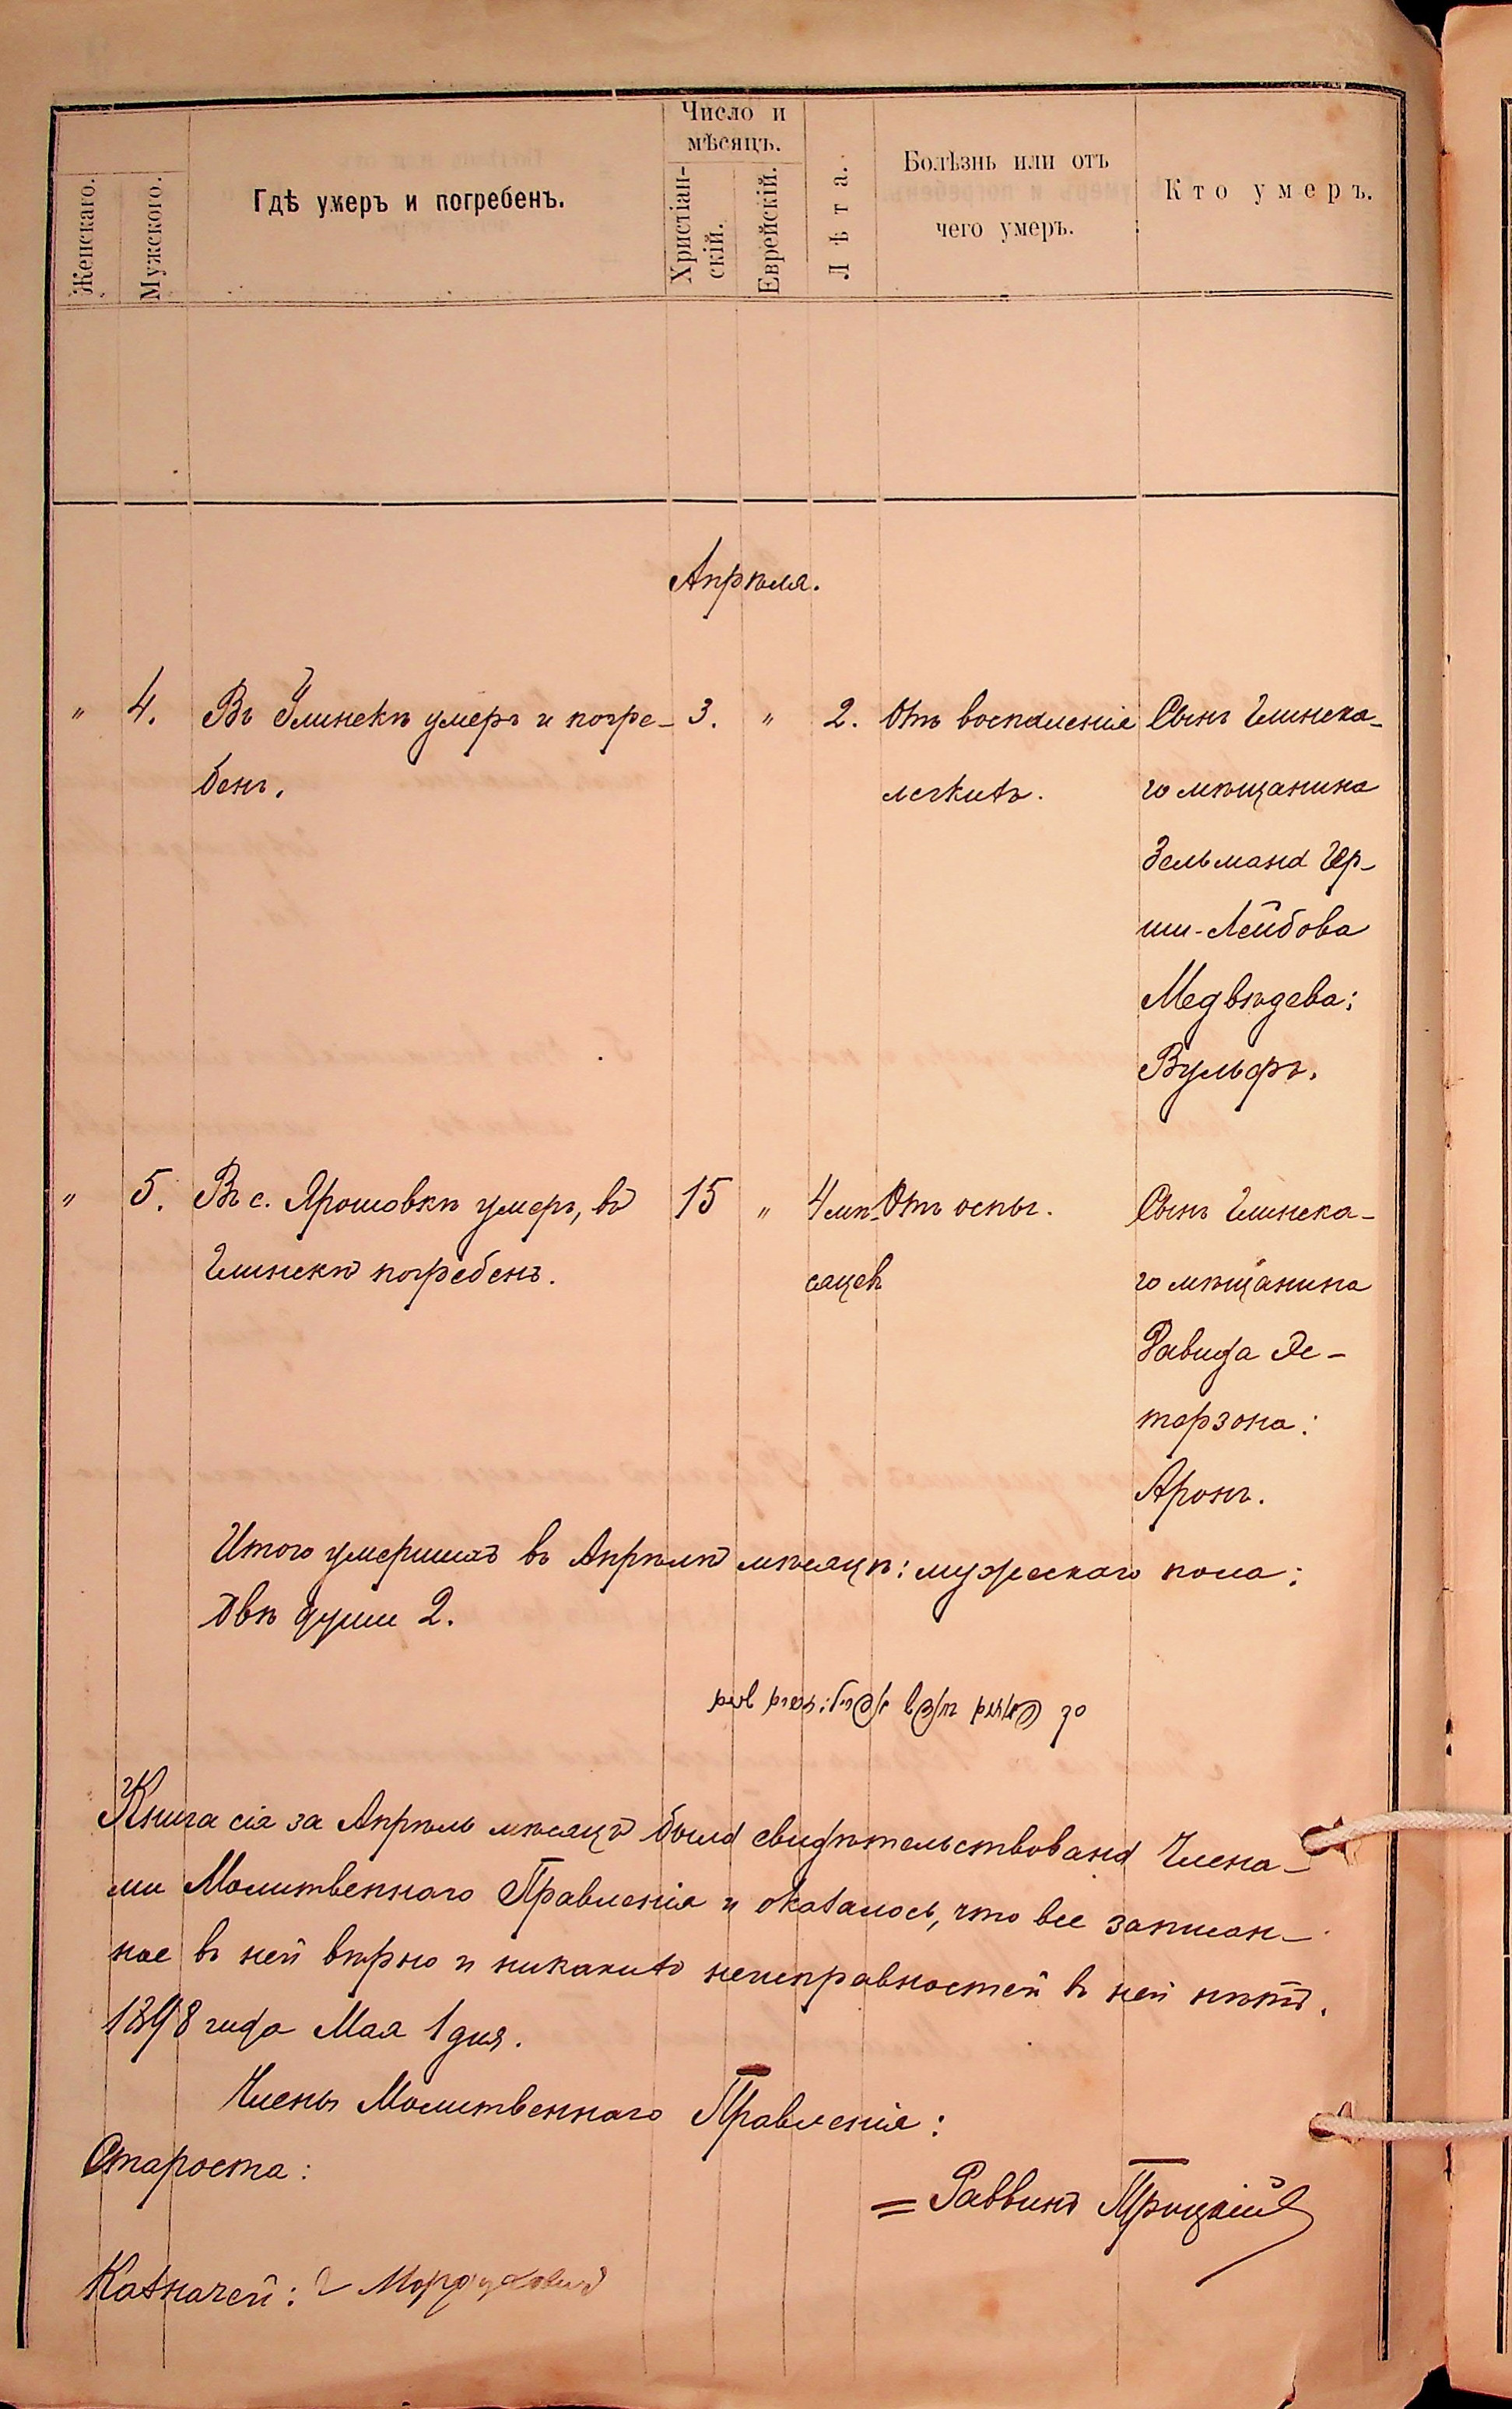 Женскаго.
Мужского.
Гдѣ умеръ и погребенъ.
Число и
мѣсяцъ.
Христіан-
скій.
Еврейскій.
Лѣта.
Болѣзнь или отъ
чего умеръ.
Кто умеръ.
Апрѣля.
" 4. Въ Глинскѣ умеръ и погре- 3. " 2. Отъ воспаленія Сынъ Глинска-
бенъ. легкихъ. го мѣщанина
Зельмана Гер-
ши-Лейбова
Медвѣдева:
Вульфъ.
" 5. Въ с. Ярошовкѣ умеръ, въ 15 " 4 мѣ- Отъ оспы. Сынъ Глинска-
Глинскѣ погребенъ. сяцев го мѣщанина
Давида Ес-
терзона:
Аронъ.
Итого умершихъ въ Апрѣлѣ мѣсяцѣ: мужескаго пола:
двѣ души 2.
Книга сія за Апрѣль мѣсяцъ была свидѣтельствована Члена-
ми Молитвеннаго Правленія и оказалось, что все записан-
ное въ ней вѣрно и никакихъ неисправностей въ ней нѣтъ.
1898 года Мая 1 дня.
Члены Молитвеннаго Правленія:
Староста:
= Раввинъ
Казначей: